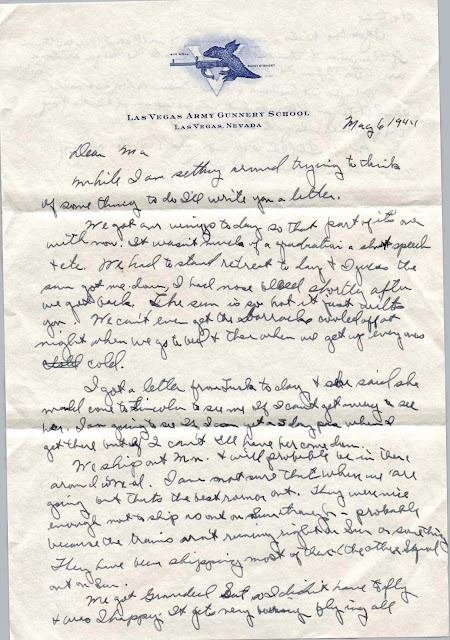 LAS VEGAS ARMY GUNNERY SCHOOL
LAS VEGAS, NEVADA
May 6 1944
Dear Ma
While I am setting around trying to think
of some thing to do I'll write you a letter.
We got our wings to day so that part of its over
with now. It wasn't much of a graduation a short speech
& etc. We had to stand retreat to day & I guess the
sun got me down, I had nose bleed shortly after
we got back. The sun is so hot it just wilts
you. We can't even get the barracks cooled off at
night when we go to bed & then when we get up every one is
cold.
I got a letter from to day & she said she
would come to Lincoln to see me if I can't get away to see
her. I am going to see if I can get a 3 day pass when I
get there but if I can't I'll have her come down.
We ship out Mon. & will probably be in there
around Wed. I am not sure that when we are
going but thats the best rumor out. They were nice
enough not to ship us out on Sun. though - probably
because the trains aren't running right on Sun or something
They have been shipping most of the other
out on Sun.
We got Grounded Sat so I didn't have to fly
& was I happy. It gets very flying all